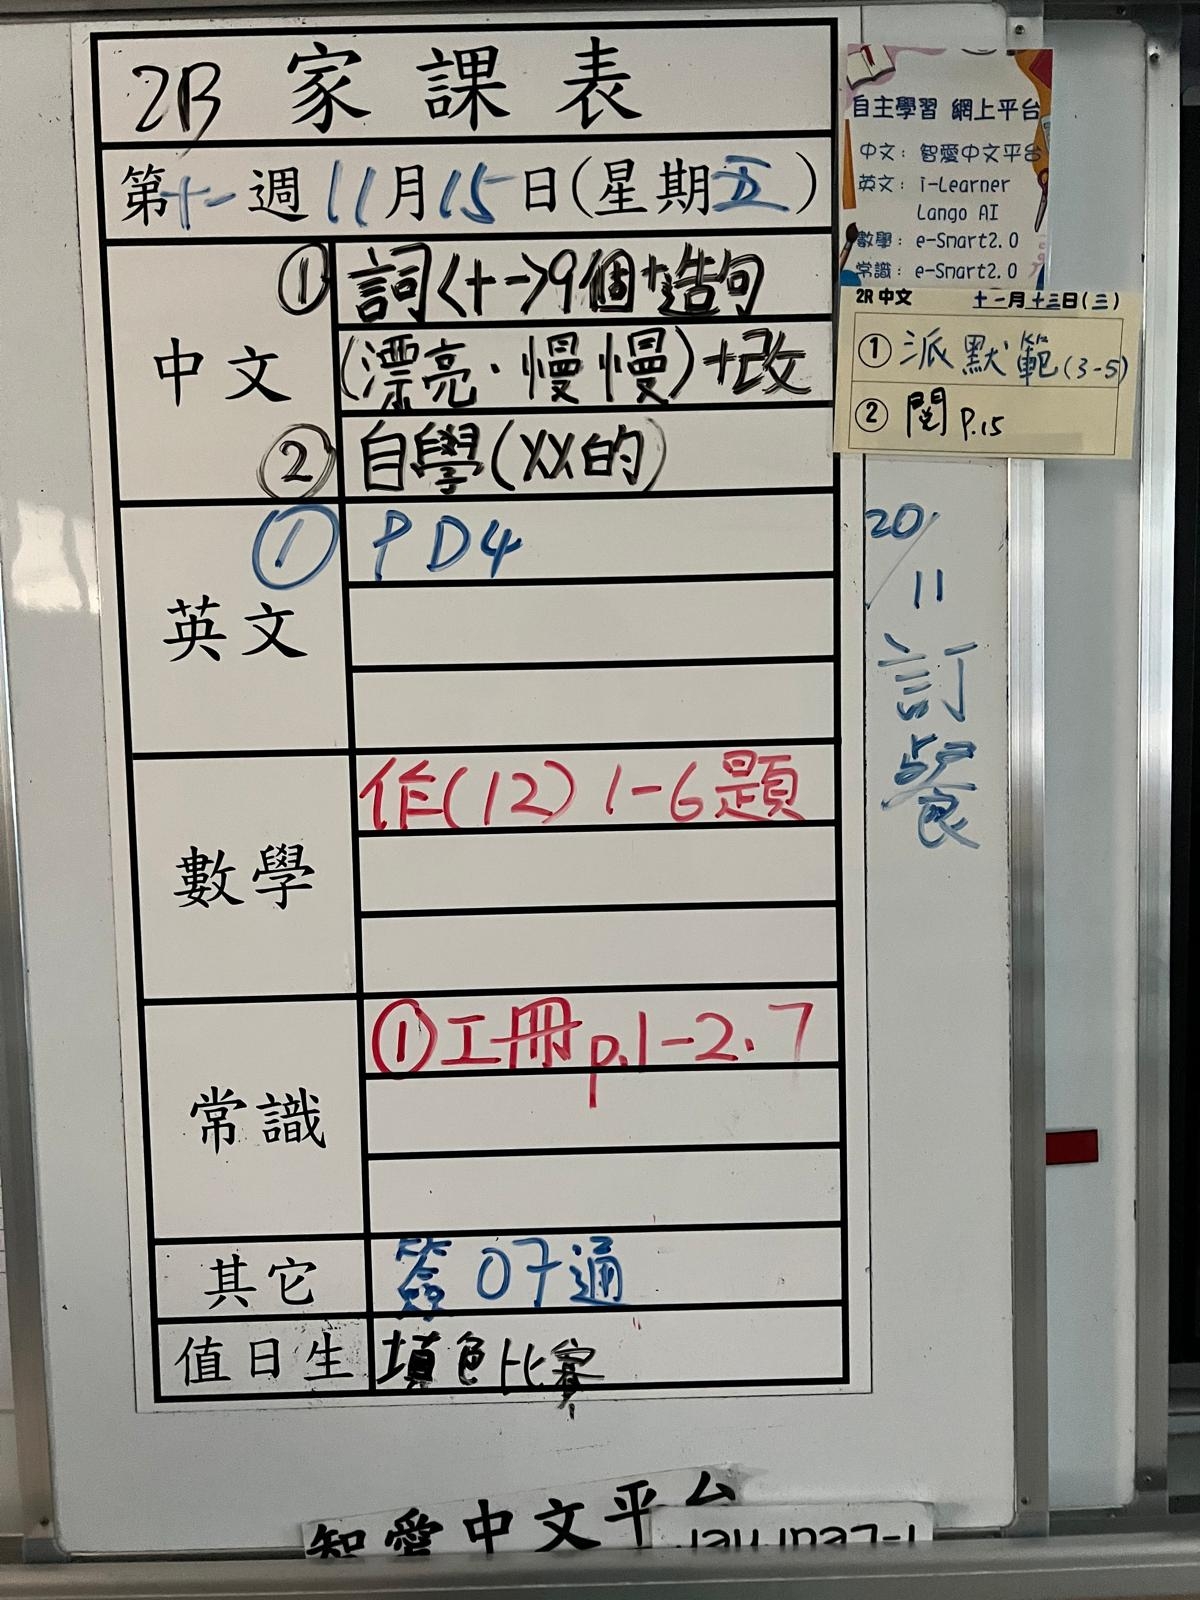 2B 家課表
第十一週 11月15日(星期五)
中文
① 詞<十一>9個+造句
(漂亮·慢慢)+改
② 自學(XX的)
英文
① PD4
數學
作(12) 1-6題
常識
① 工冊 p.1-2.7
其它
簽 07通
值日生
填色比賽
自主學習 網上平台
中文: 智愛中文平台
英文: i-Learner
Lango AI
數學: e-Smart2.0
常識: e-Smart2.0
2R 中文 十一月十三日(三)
① 派默範(3-5)
② 閱 P.15
20/11
訂餐
智愛中文平台
i-Learner